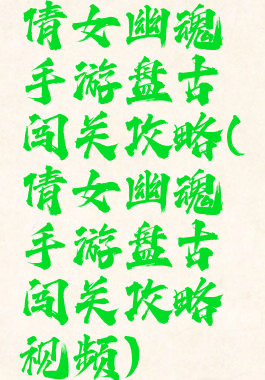 倩女幽魂
手游盘古
闯关攻略(
倩女幽魂
手游盘古
闯关攻略
视频)